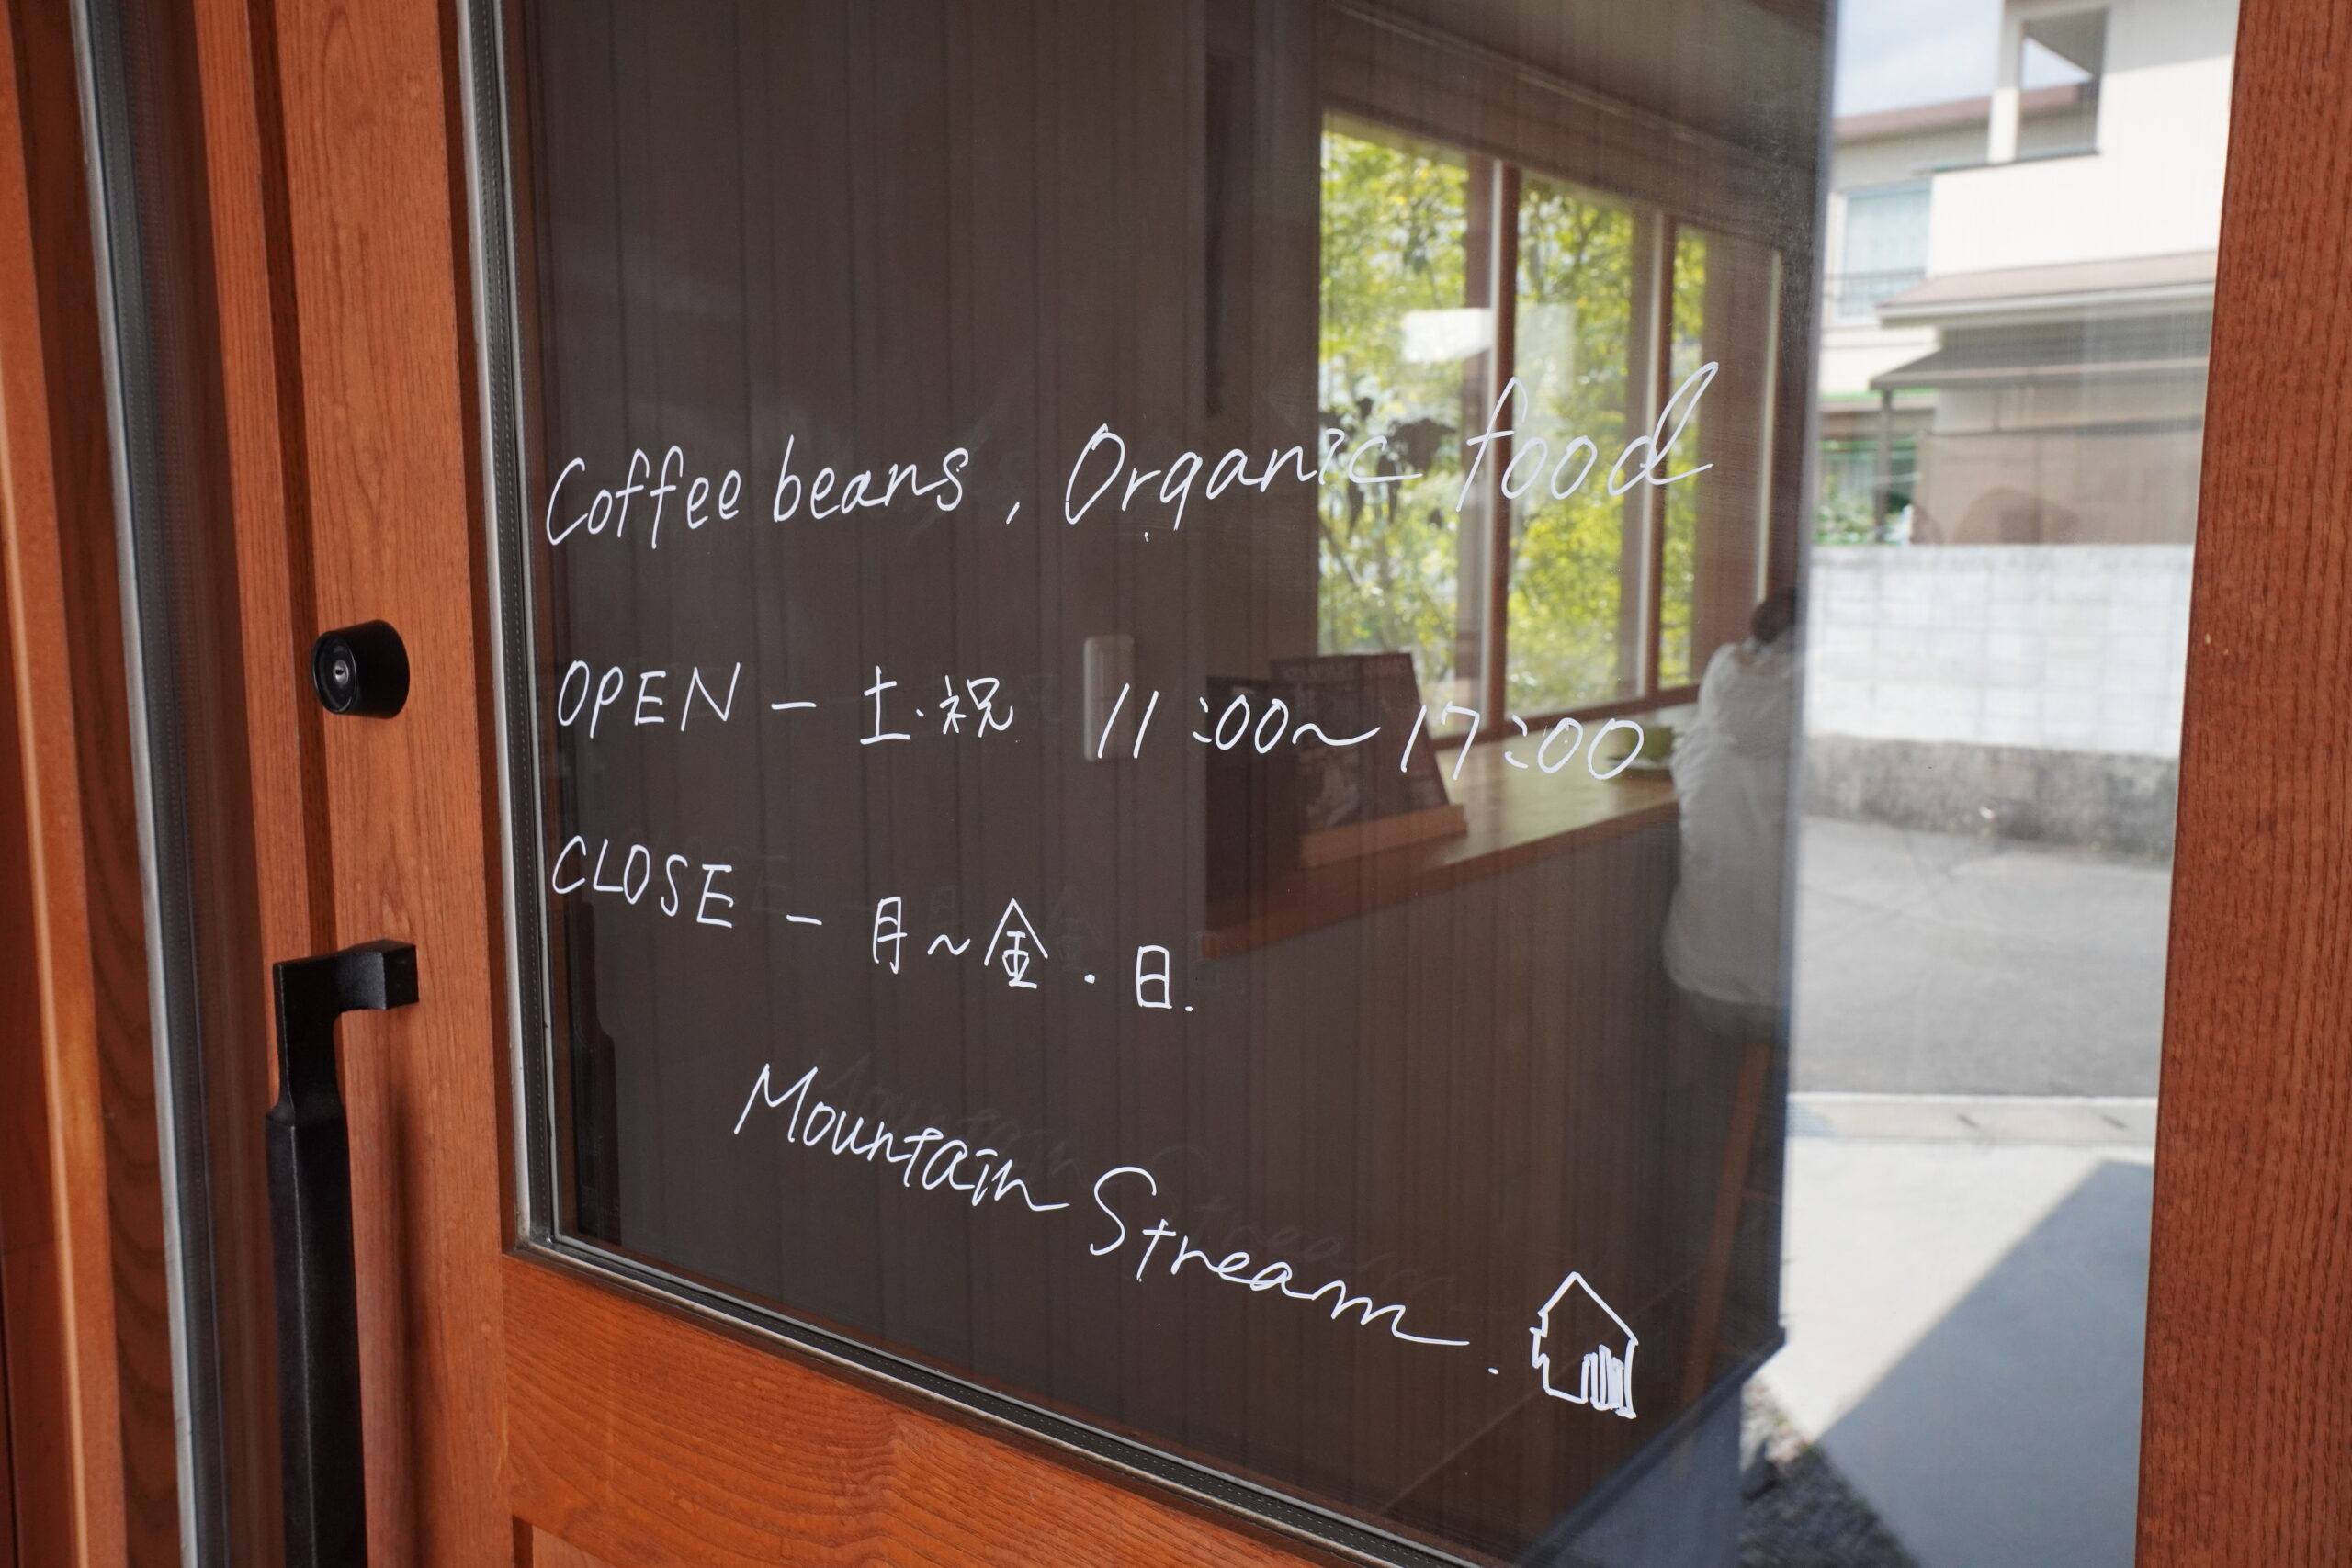 Coffee beans, Organic food
OPEN － 土・祝 11:00～17:00
CLOSE － 月～金・日.
Mountain Stream.